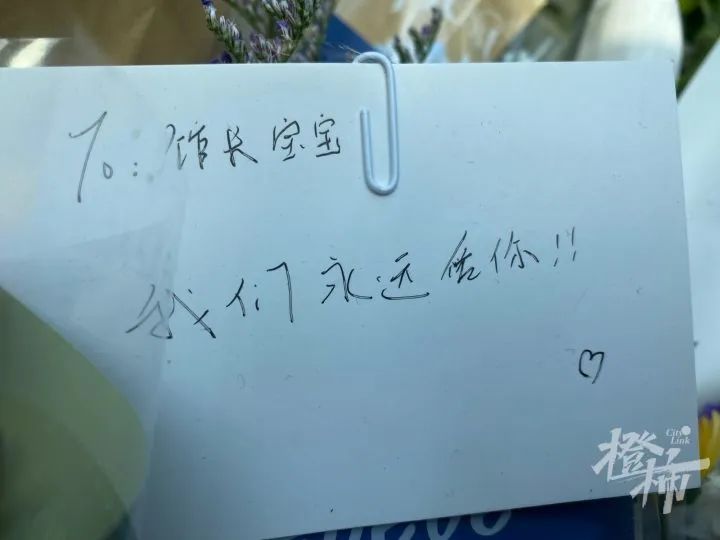 To: 馆长宝宝
我们永远信你!!
♡
City Link
橙柿